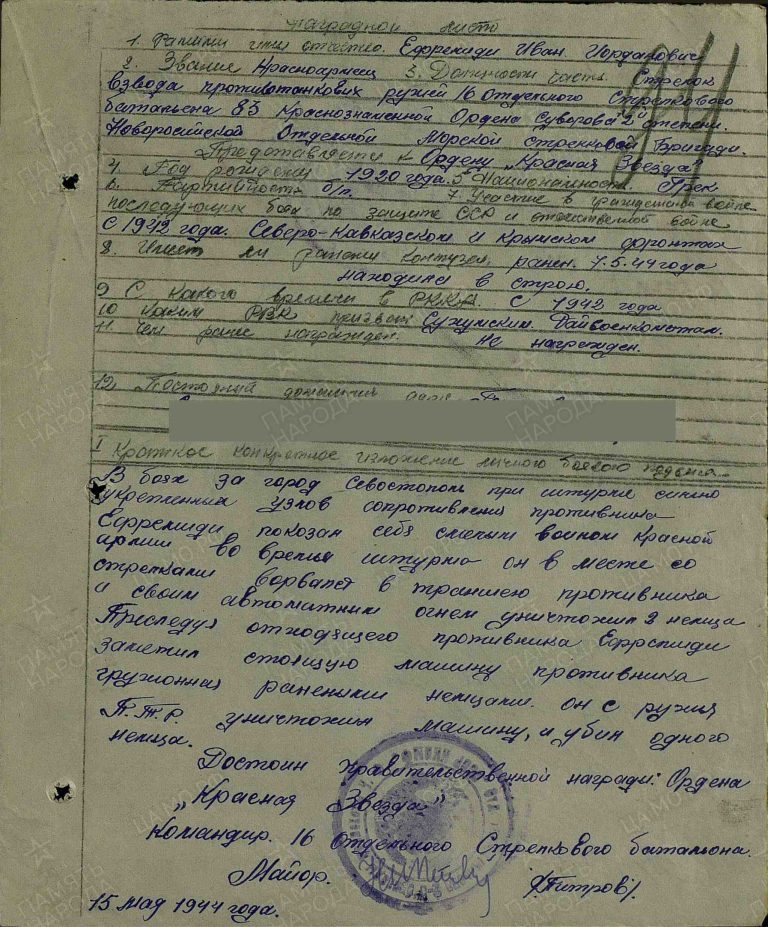 Наградной лист
1. Фамилия имя отчество. Ефремиди Иван Иорданович
2. Звание Красноармеец 3. Должность часть. Стрелок
взвода противотанкових ружий 16 Отдельного Стрелкового
батальена 83 Краснознаменной Ордена Суворова "2" степени
Новоросийской Отдельной Морской стрелковой Бригади.
Представляется к Ордену "Красная Звезда"
4. Год рождения 1920 года. 5 Национальность. Грек
6. Партийность б/п. 7 Участие в гражданской войне
последующих боях по защите СССР и отечественной войне
С 1942 года. Северо-Кавказском и Крымском фронтах
8. Имеет ли ранения контузии. ранен. 7.5.44 года
находился в строю.
9 С какого времени в РККА. С 1942 года
10 Каким РВК призван Сухумским Райвоенкоматам.
11. Чем ранее награжден. Не награжден.
12. Постоянный домашний адрес
I Краткое конкретное изложение личного боевого подвига
В боях за город Севостополь при штурме силно
укрепленных узлов сопротивления противника
Ефремиди показал себя смелым воином Красной
армии во время штурма он в месте со
стрелками ворвался в траншею противника
и своим автоматним огнем уничтожил 2 немца
Преследуя отходящего противника Ефремиди
заметил стоящую машину противника
гружонная ранеными немцами. он с ружия
П.Т.Р. уничтожил машину, и убил одного
немца.
Достоин правительственной награди: Ордена
"Красная Звезда"
Командир. 16 Отдельного Стрелкового батальона.
Майор. /Петров/.
15 мая 1944 года.
ПАМЯТЬ НАРОДА
ЦАМО.РФ